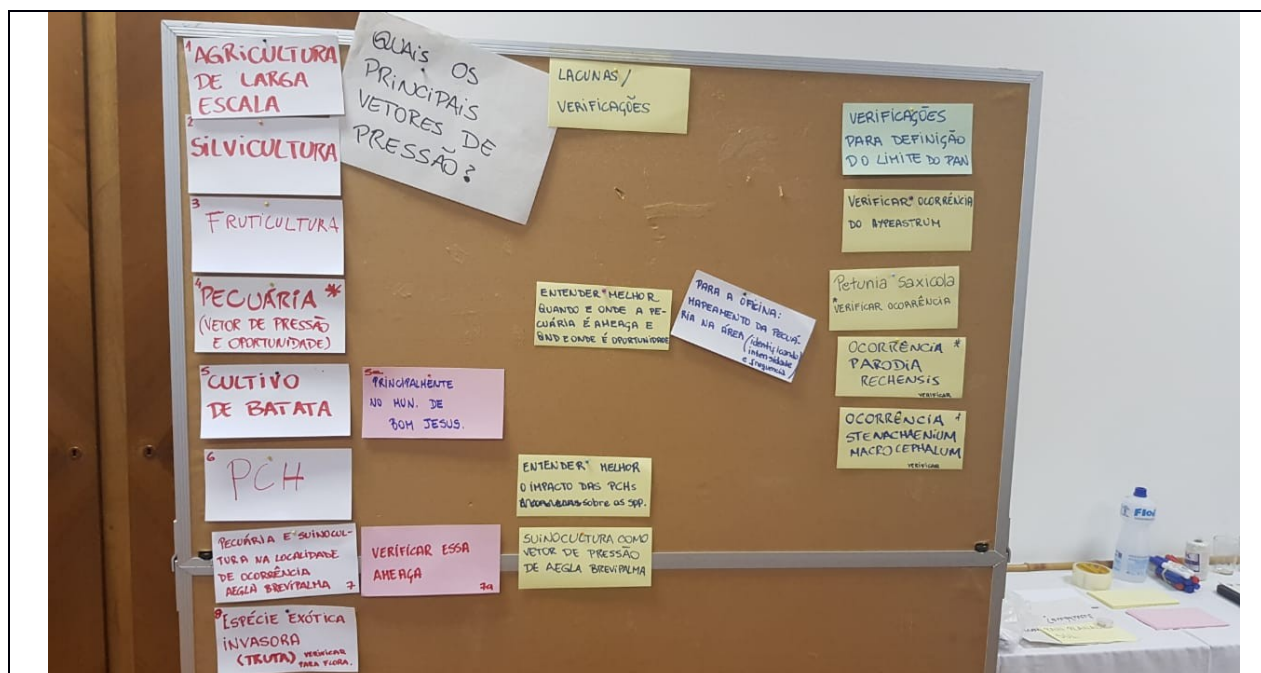 QUAIS OS
PRINCIPAIS
VETORES DE
PRESSÃO?
1 AGRICULTURA
DE LARGA
ESCALA
2
SILVICULTURA
3
FRUTICULTURA
4
PECUÁRIA *
(VETOR DE PRESSÃO
E OPORTUNIDADE)
5
CULTIVO
DE BATATA
5a
PRINCIPALMENTE
NO MUN. DE
BOM JESUS.
6
PCH
PECUÁRIA E SUINOCUL-
TURA NA LOCALIDADE
DE OCORRÊNCIA
AEGLA BREVIPALMA 7
VERIFICAR ESSA
AMEAÇA
7a
8
ESPÉCIE EXÓTICA
INVASORA
(TRUTA) VERIFICAR
PARA FLORA.
LACUNAS/
VERIFICAÇÕES
ENTENDER MELHOR
QUANDO E ONDE A PE-
CUÁRIA É AMEAÇA E
QND E ONDE É OPORTUNIDADE
PARA A OFICINA:
MAPEAMENTO DA PECUÁ-
RIA NA ÁREA (identificando
intensidade
e frequencia)
ENTENDER MELHOR
O IMPACTO DAS PCHs
sobre as spp.
SUINOCULTURA COMO
VETOR DE PRESSÃO
DE AEGLA BREVIPALMA
VERIFICAÇÕES
PARA DEFINIÇÃO
DO LIMITE DO PAN
VERIFICAR OCORRÊNCIA
DO
Petunia Saxicola
*VERIFICAR OCORRÊNCIA
OCORRÊNCIA *
PARODIA
RECHENSIS
VERIFICAR
OCORRÊNCIA
STENACHAENIUM
MACROCEPHALUM
VERIFICAR